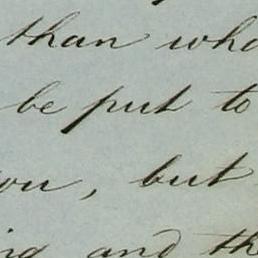 than who
be put to
ou, but
ing and th